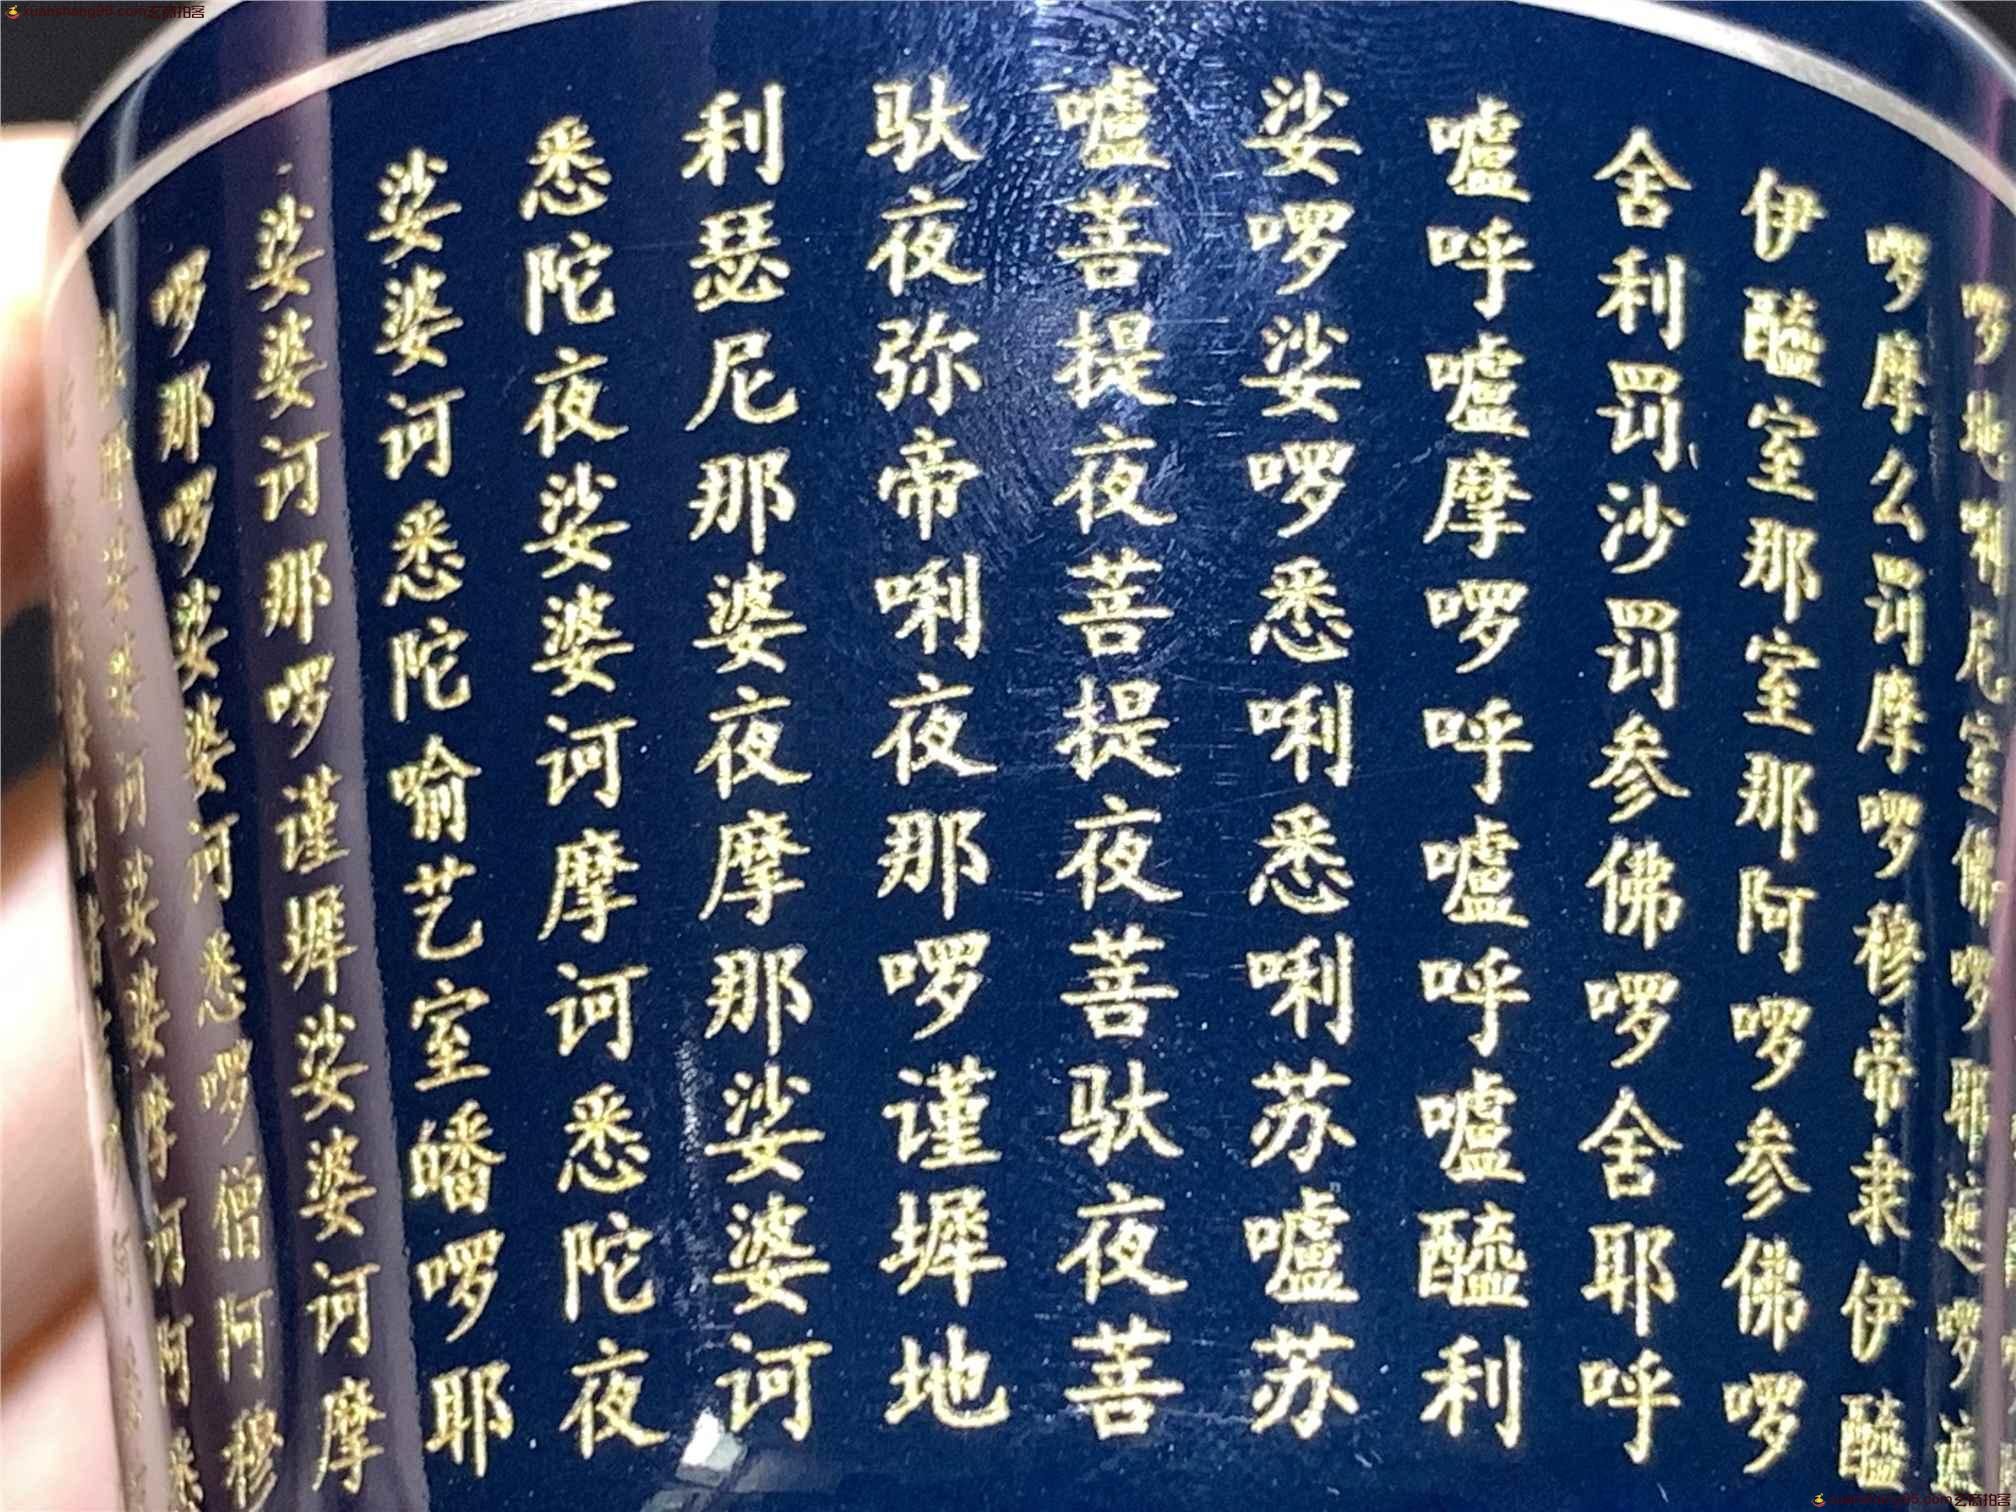 啰地唎尼室佛啰耶遮啰遮
啰摩么罚摩啰穆帝隶伊醯
伊醯室那室那阿啰参佛啰
舍利罚沙罚参佛啰舍耶呼
嚧呼嚧摩啰呼嚧呼嚧醯利
娑啰娑啰悉唎悉唎苏嚧苏
嚧菩提夜菩提夜菩驮夜菩
驮夜弥帝唎夜那啰谨墀地
利瑟尼那婆夜摩那娑婆诃
悉陀夜娑婆诃摩诃悉陀夜
娑婆诃悉陀喻艺室皤啰耶
娑婆诃那啰谨墀娑婆诃摩
啰那啰娑婆诃悉啰僧阿穆
娑婆诃娑婆摩诃阿悉